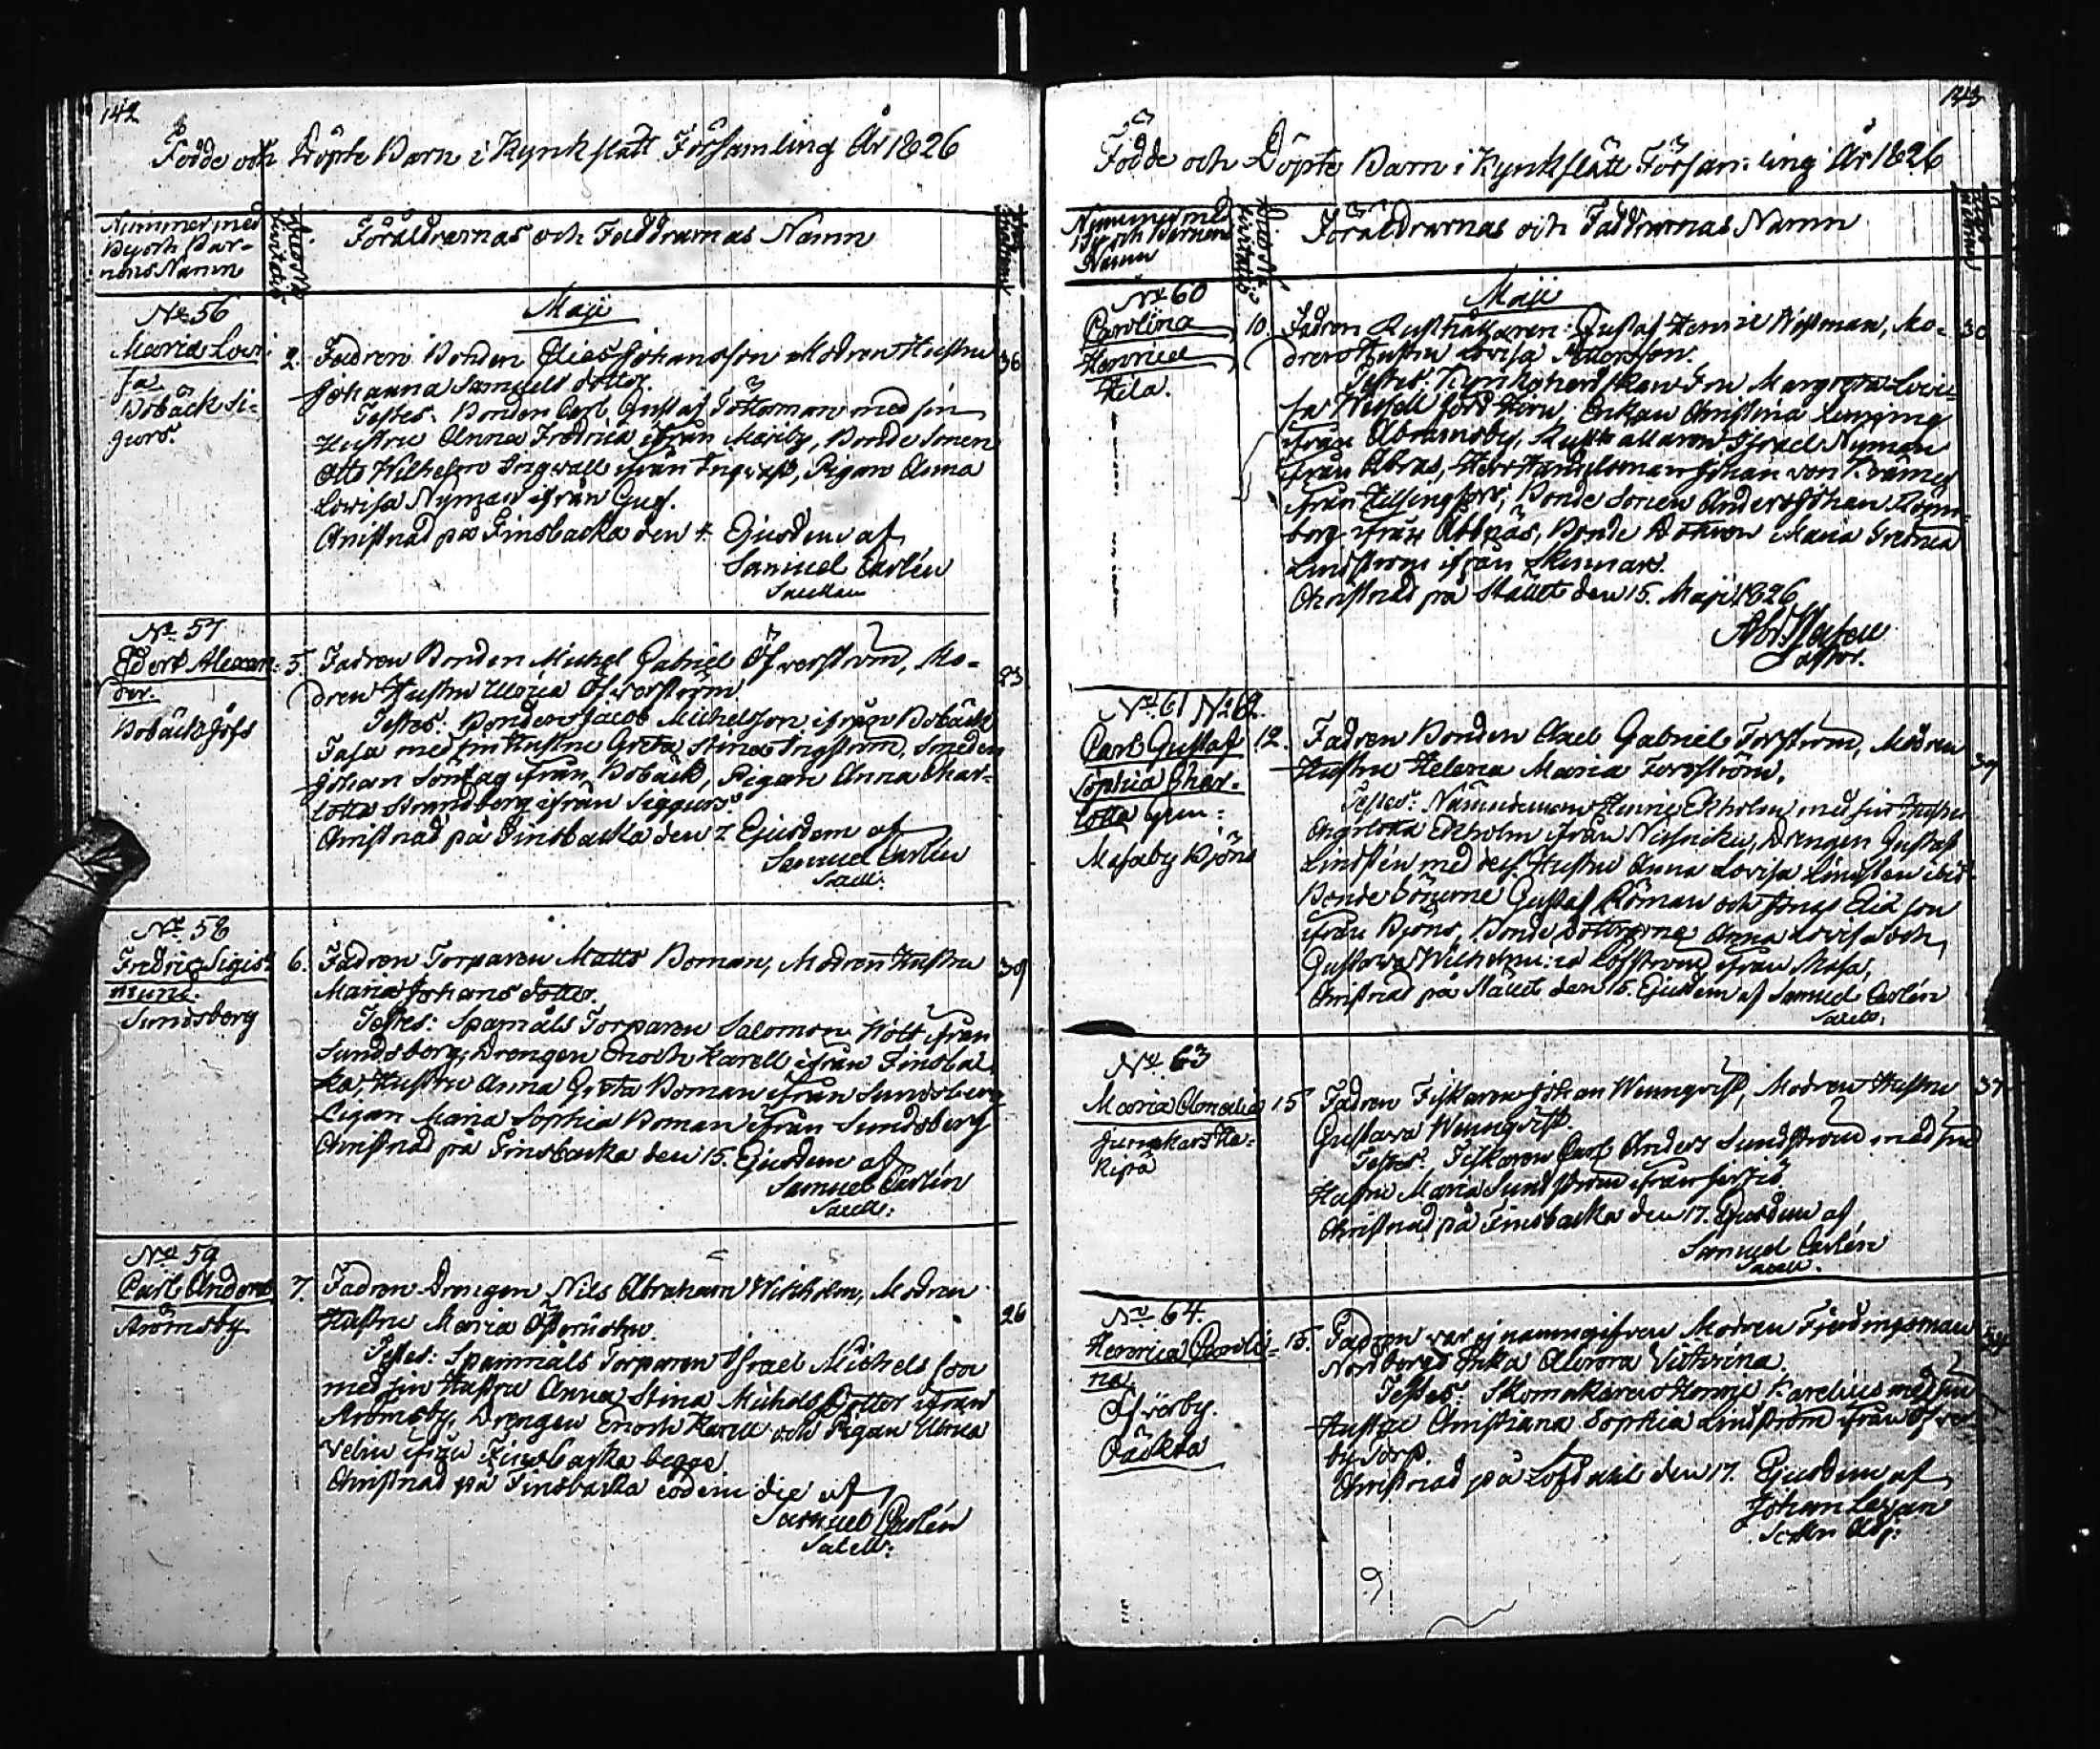 142
Födde och Döpte Barn i Kyrkslätt Församling År 1826
Nummer med
By och Bar-
nens Namn
Föräldrarnas och Faddrarnas Namn
Maji
No 56
Maria Lovi-
sa
Bobäck Si-
gurs.
2. Fadren Bonden Elias Johansson Modren Hustru 36
Johanna Samuels dotter.
Testes: Bonden Carl Gustaf med sin
Hustru Anna Fredrica ifrån Mäkby, Bonde Sonen
Otto Wilhelm Ingwall ifrån Ingwast, Pigan Anna
Lovisa Nyman ifrån
Christnad på Finsbacka den 4 Ejusdem af
Samuel Carlén
Sacell:
No 57
Edert Alexan-
der.
Bobäck Jofs
5. Fadren Bonden Michel Gabriel Öfverström, Mo- 23
dren Hustru Ulrica Öfverström
Testes: Bonden Jacob Michelsson ifrån Bobäck
med sin Hustru Greta Stina Ingström, Smeden
Johan Söndag ifrån Bobäck, Pigan Anna Char-
lotta Strandberg ifrån Siggurs
Christnad på Finsbacka den 7 Ejusdem af
Samuel Carlén
Sacell:
No 58
Fredric Sigis-
mund.
Sundsberg
6. Fadren Torparen Matts Boman, Modren Hustru 39
Maria Johans dotter.
Testes: Spanmåls Torparen Salomon Hölt ifrån
Sundsberg, Drengen Enoch Karell ifrån Finsbac-
ka, Hustru Anna Greta Boman ifrån Sundsberg
Pigan Maria Sophia Boman ifrån Sundsberg
Christnad på Finsbacka den 15. Ejusdem af
Samuel Carlén
Sacell:
No 59
Carl Anders
Aromsby
7. Fadren Drengen Nils Abraham Wikholm, Modren
Hustru Maria 26
Testes: Spanmåls Torparen Israel Michelsson
med sin Hustru Anna Stina Michels Dotter ifrån
Aromsby, Drengen Enoch Karell och Pigan Ulrica
Velin ifrån Finsbacka begge
Christnad på Finsbacka eodem die af
Samuel Carlén
Sacell:
143
Födde och Döpte Barn i Kyrkslätt Församling År 1826
Nummer med
By och Barnens
Namn
Föräldrarnas och Faddrarnas Namn
Maji
No 60
Carolina
Henrica
Hila.
10. Fadren Rusthållaren Gustaf Henric Westman, Mo- 30
dren Hustru Lovisa
Testes: Kyrkoherdskan Fru Margreta Lovi-
sa Wessell född Hirn, Enkan Christina
ifrån Abramsby, Rusthållaren Israel Nyman
ifrån Abras, Herr Handelsman Johan von
ifrån Helsingfors, Bonde Sonen Anders Johan
ifrån Abbnäs, Bonde Dottren Maria Fredrica
Lindström ifrån Skinnars.
Christnad på Stället den 15. Maji 1826
Pastor.
No 61 No 62.
Carl Gustaf
Sophia Char-
lotta Gem:
Masaby Björs
12. Fadren Bonden Axel Gabriel Forsström, Modren 37
Hustru Helena Maria Forsström.
Testes: Nämndeman Henric Ekholm med sin Hustru
Ekholm ifrån Drengen Gustaf
Lindstén med dess Hustru Anna Lovisa Lindstén ibid
Bonde Sönerne Gustaf Höman och Jonas Eliæson
ifrån Björs, Bonde Döttrarne Anna Lovisa och
Gustava Wilhelmina Löfström ifrån Masa,
Christnad på Stället den 15. Ejusdem af Samuel Carlén
Sacell:
No 63
Maria Amalia
15 Fadren Fiskaren Johan Wennqvist, Modren Hustru 37
Gustava Wennqvist.
Testes: Fiskaren Carl Anders Sundström med sin
Hustru Maria Sundström ifrån
Christnad på Finsbacka den 17. Ejusdem af
Samuel Carlén
Sacell:
No 64.
Henrica Caroli-
na.
Öfverby.
Oäkta
15. Fadren var ej namngifven Modren Fjerdingsman
Nordbergs Enka Aurora Victorina.
Testes: Skomakaren Henric Karelius med sin
Hustru Christiana Sophia Lindström ifrån Öfver-
by Torp.
Christnad på Löfdahl den 17. Ejusdem af
Johan
Adj: